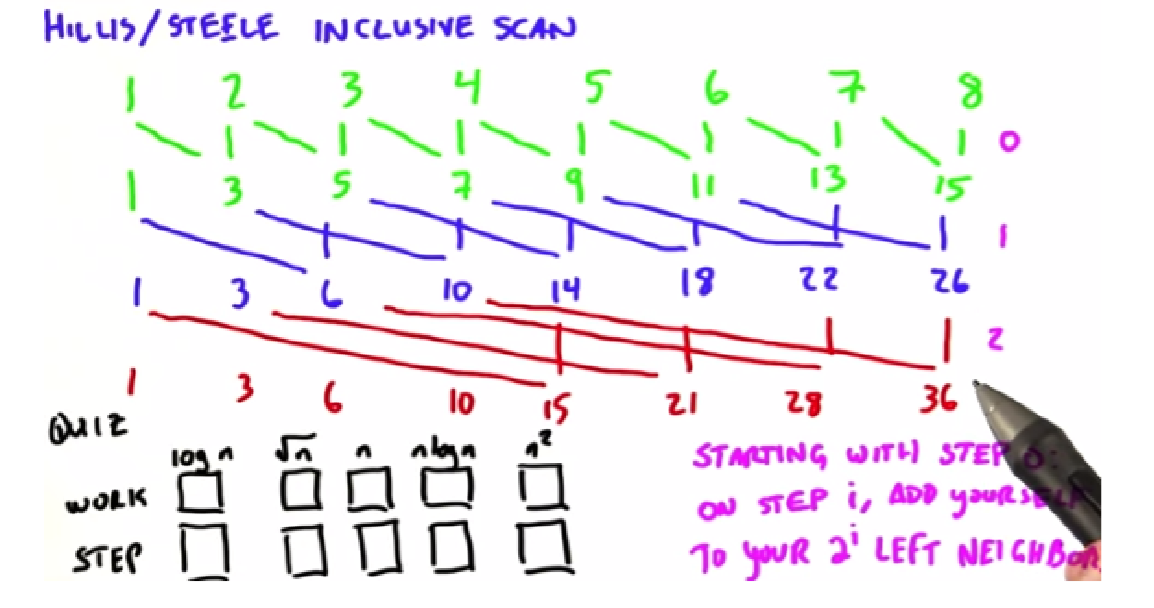 HILLIS/STEELE INCLUSIVE SCAN
1 2 3 4 5 6 7 8
0
1 3 5 7 9 11 13 15
1
1 3 6 10 14 18 22 26
2
1 3 6 10 15 21 28 36
QUIZ
log n √n n n log n n²
WORK
STEP
STARTING WITH STEP 0:
ON STEP i, ADD YOURSELF
TO YOUR 2^i LEFT NEIGHBOR